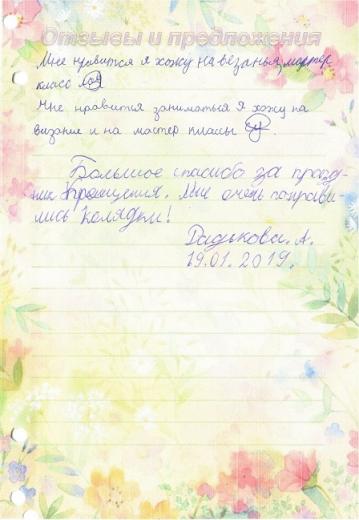 Отзывы и предложения
Мне нравится я хожу на везанья, мартер
класс
Мне нравится заниматься я хожу на
визание и на мастер класы
Большое спасибо за празд-
ник Крещения. Мне очень понрави-
лись Колядки!
Дадькова. А.
19.01.2019.